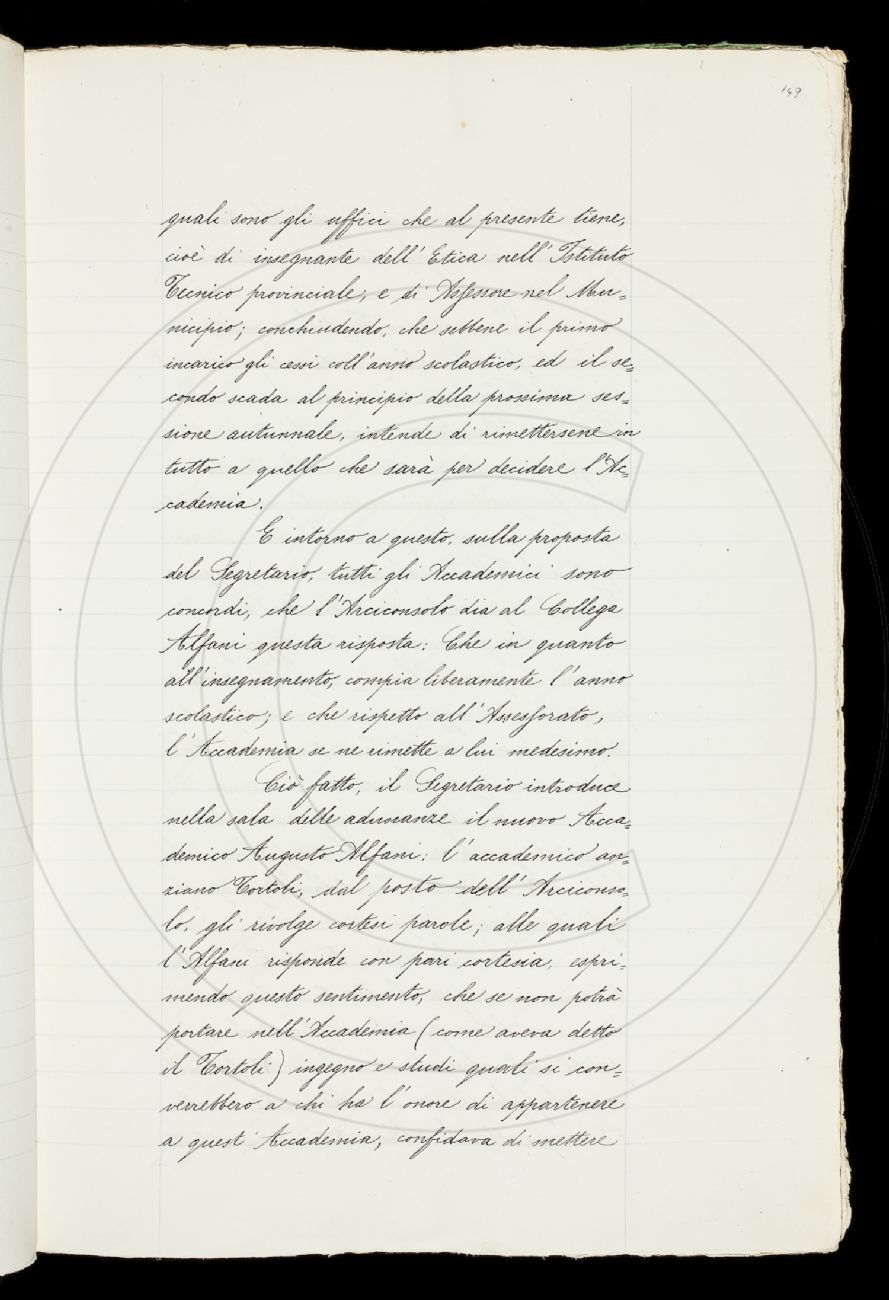 149
quali sono gli uffici che al presente tiene,
cioè di insegnante dell' Etica nell' Istituto
Tecnico provinciale, e di Assessore nel Mu=
nicipio; conchiudendo, che sebbene il primo
incarico gli cessi coll' anno scolastico, ed il se=
condo scada al principio della prossima ses=
sione autunnale, intende di rimettersene in
tutto a quello che sarà per decidere l' Ac=
cademia.
E intorno a questo, sulla proposta
del Segretario, tutti gli Accademici sono
concordi, che l' Arciconsolo dia al Collega
Alfani questa risposta: Che in quanto
all' insegnamento, compia liberamente l' anno
scolastico; e che rispetto all' Assessorato,
l' Accademia se ne rimette a lui medesimo.
Ciò fatto, il Segretario introduce
nella sala delle adunanze il nuovo Acca=
demico Augusto Alfani: l' accademico an=
ziano Tortoli, dal posto dell' Arciconso=
lo, gli rivolge cortesi parole; alle quali
l' Alfani risponde con pari cortesia, espri=
mendo questo sentimento, che se non potrà
portare nell' Accademia (come aveva detto
il Tortoli) ingegno e studi quali si con=
verrebbero a chi ha l' onore di appartenere
a quest' Accademia, confidava di mettere